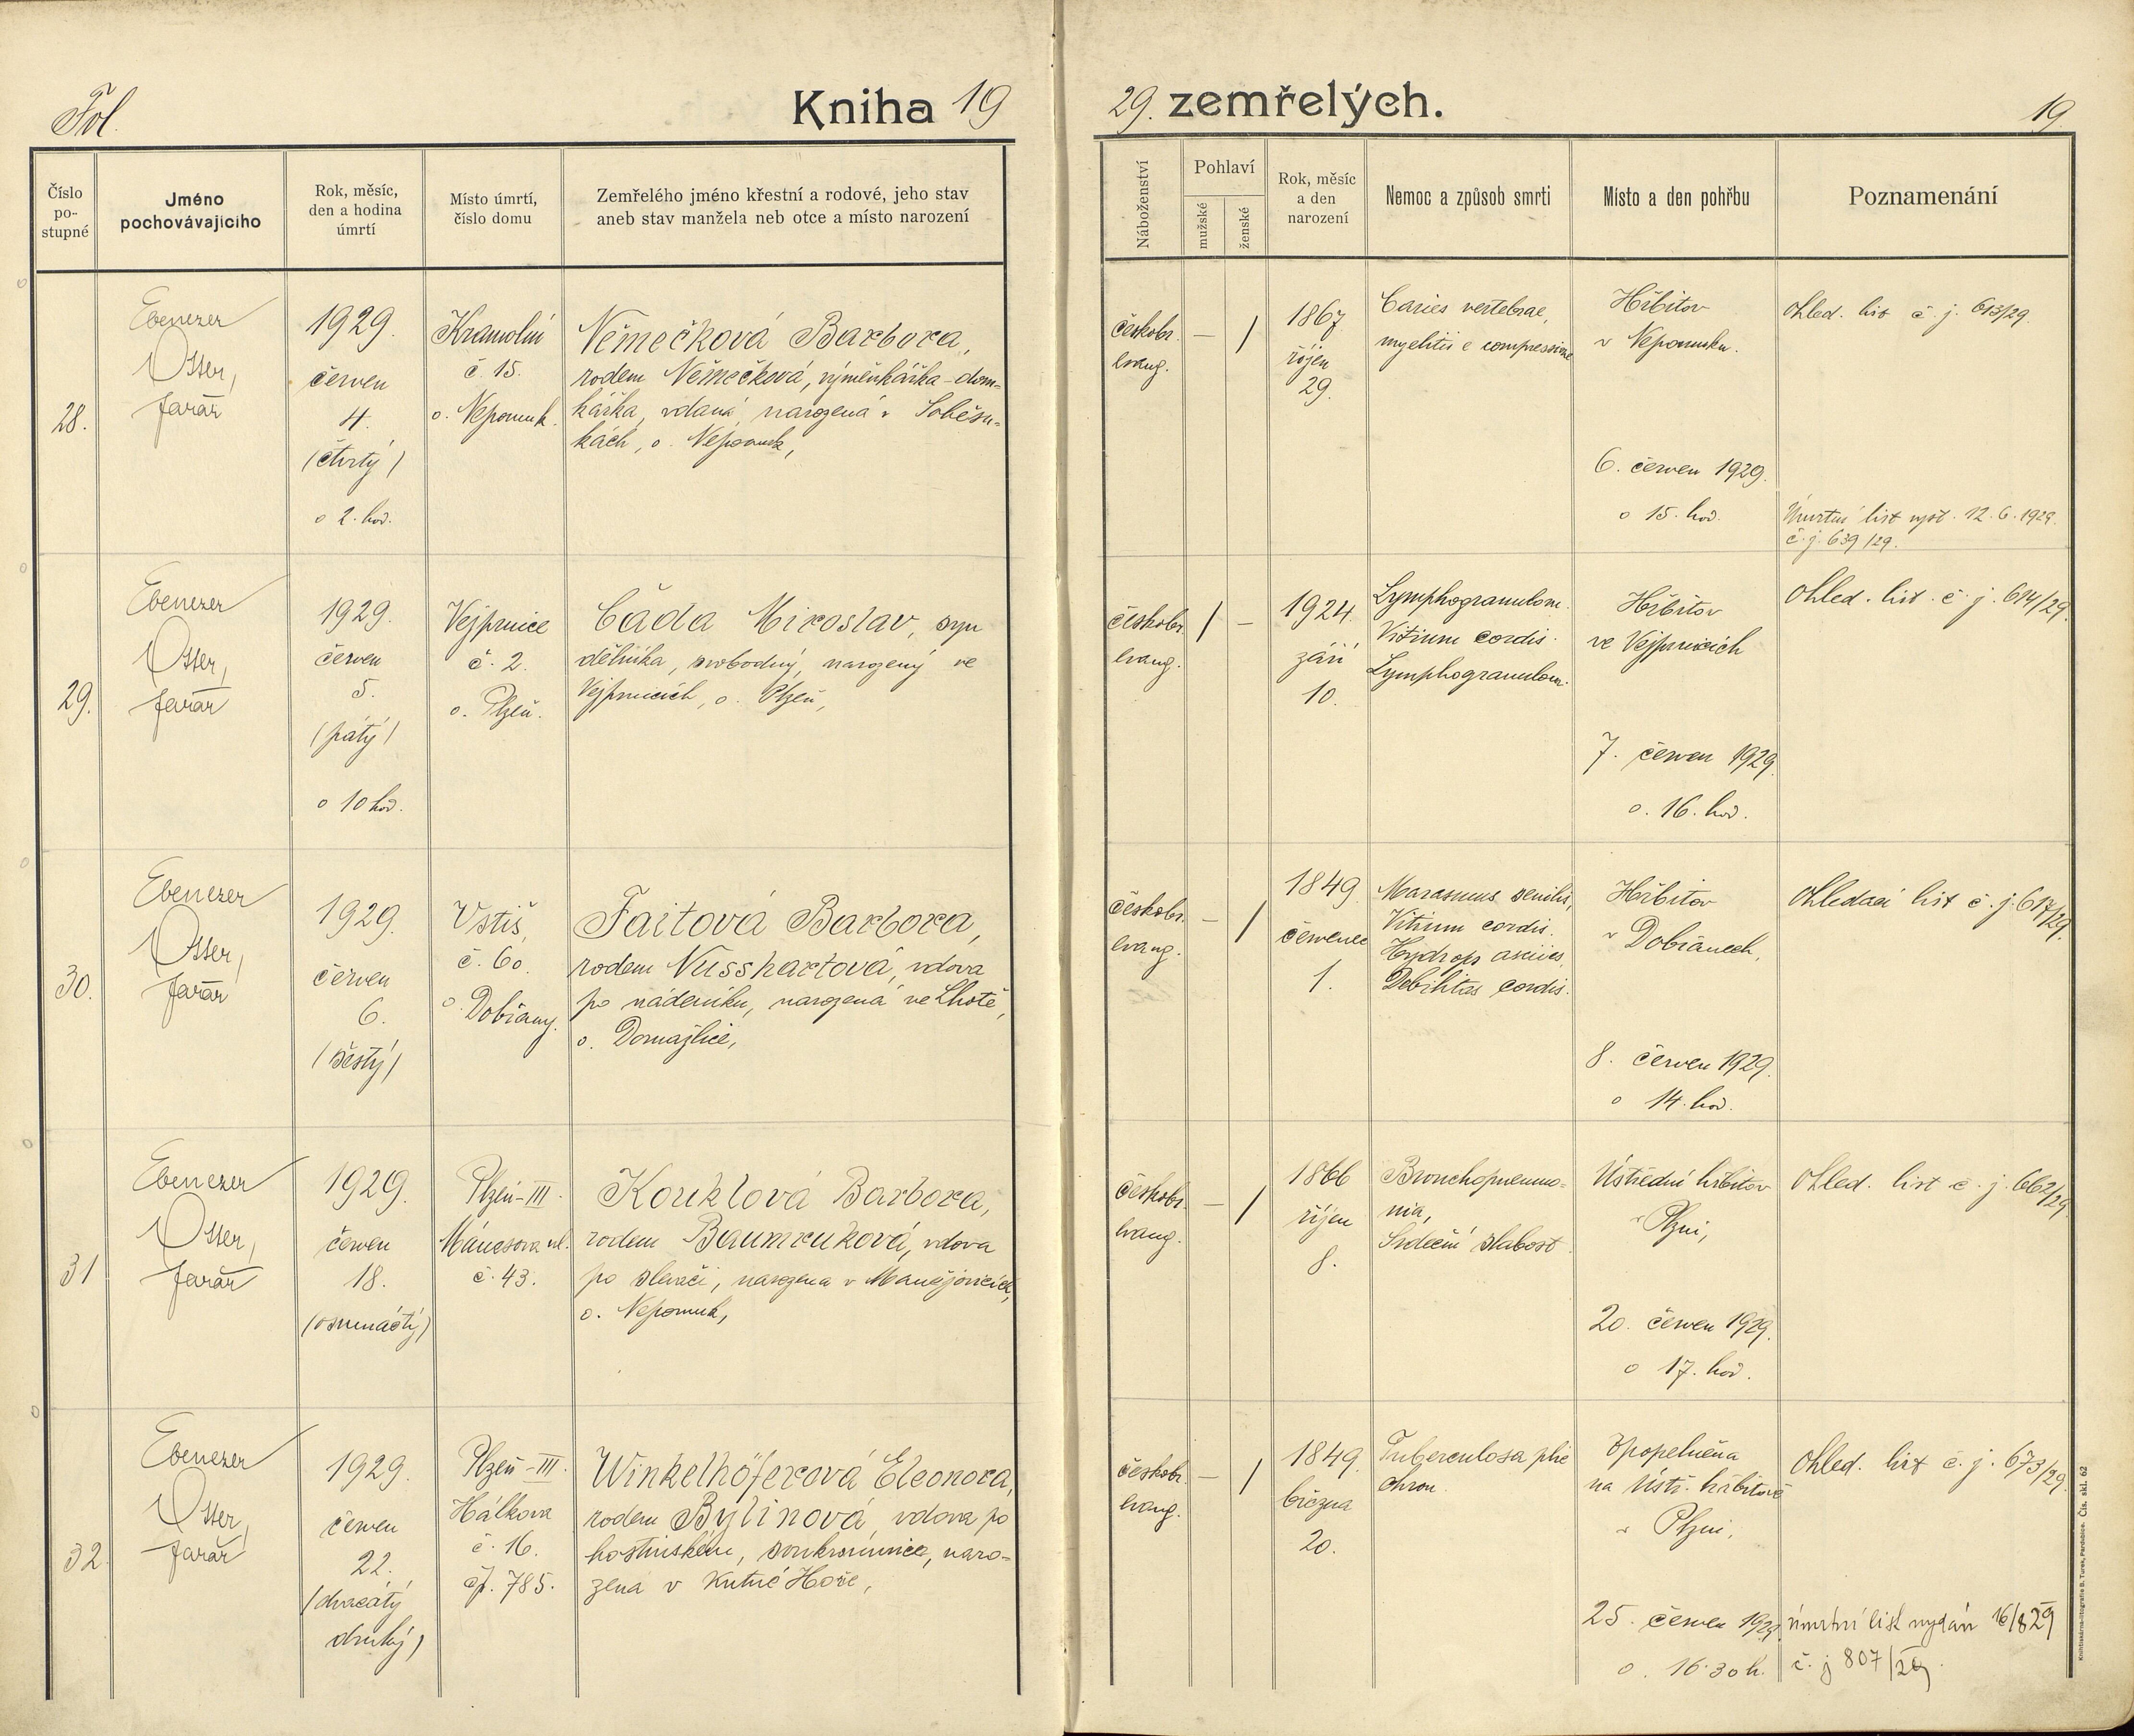 Fol.
Kniha 19
29. zemřelých.
19.
Číslo
po-
stupné
Jméno
pochovávajícího
Rok, měsíc,
den a hodina
úmrtí
Místo úmrtí,
číslo domu
Zemřelého jméno křestní a rodové, jeho stav
aneb stav manžela neb otce a místo narození
Náboženství
Pohlaví
mužské
ženské
Rok, měsíc
a den
narození
Nemoc a způsob smrti
Místo a den pohřbu
Poznamenání
28.
Ebenezer
Otter,
farář
1929.
červen
4.
(čtvrtý)
o 2. hod.
Kramolín
č. 15.
o. Nepomuk.
Němečková Barbora,
rodem Němečková, výměnkářka - dom-
kářka, vdaná narozená v Soběsu-
kách, o. Nepomuk,
českobr.
evang.
—
/
1867
říjen
29.
Caries vertebrae,
myelitis e compressione
Hřbitov
v Nepomuku.
6. červen 1929.
o 15. hod.
Ohled. list č. j. 613/29.
Úmrtní list vyst. 12. 6. 1929.
č. j. 639/29.
29.
Ebenezer
Otter,
farář
1929.
červen
5.
(pátý)
o 10 hod.
Vejprnice
č. 2.
o. Plzeň.
Čáda Miroslav, syn
dělníka, svobodný, narozený ve
Vejprnicích, o. Plzeň,
českobr.
evang.
/
—
1924.
září
10.
Lymphogranulom.
Vitium cordis.
Lymphogranulom.
Hřbitov
ve Vejprnicích
7. červen 1929.
o. 16. hod.
Ohled. list. č. j. 614/29.
30.
Ebenezer
Otter,
farář
1929.
červen
6.
(šestý)
Vstiš,
č. 60.
o Dobřany.
Faitová Barbora,
rodem Nusshartová, vdova
po nádeníku, narozená ve Lhotě,
o. Domažlice,
českobr.
evang.
—
/
1849.
červenec
1.
Marasmus senilis,
Vitium cordis.
Hydrops ascites,
Debilitas cordis.
Hřbitov
v Dobřanech,
8. červen 1929.
o 14. hod.
Ohledací list č. j. 617/29.
31
Ebenezer
Otter,
farář
1929.
červen
18.
(osmnáctý)
Plzeň-III.
Mánesova ul.
č. 43.
Kouklová Barbora,
rodem Baumruková, vdova
po slevači, narozena v Maněčovicích,
o. Nepomuk,
českobr.
evang.
—
/
1866
říjen
8.
Bronchopneumo-
nia,
Srdeční slabost
Ústřední hřbitov
v Plzni,
20. červen 1929.
o 17. hod.
Ohled. list č. j. 662/29.
32
Ebenezer
Otter,
farář
1929.
červen
22.
(dvacátý
druhý)
Plzeň-III.
Hálkova
č. 16.
čp. 785.
Winkelhöferová Eleonora,
rodem Bylinová, vdova po
hostinském, soukromnice, naro-
zena v Kutné Hoře,
českobr.
evang.
—
/
1849.
března
20.
Tuberculosa plic
chron.
Zpopelněna
na Ústř. hřbitově
v Plzni,
25. červen 1929.
o. 16·30 h.
Ohled. list č. j. 673/29.
úmrtní list vydán 16/8 29
č. j 807/29.
Knihtiskárna-litografie B. Turek, Pardubice. Čís. skl. 62